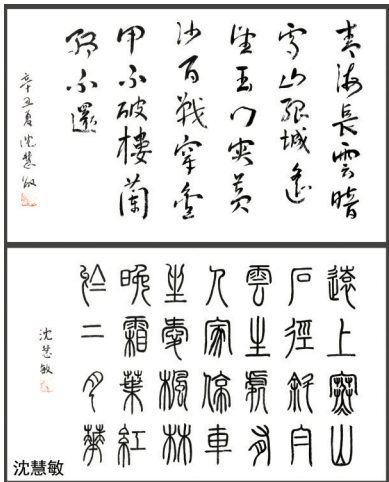 青海長雲暗
雪山孤城遙
望玉門關黃
沙百戰穿金
甲不破樓蘭
終不還
辛丑夏沈慧敏
遠上寒山
石徑斜白
雲生處有
人家停車
坐愛楓林
晚霜葉紅
於二月華
沈慧敏
沈慧敏